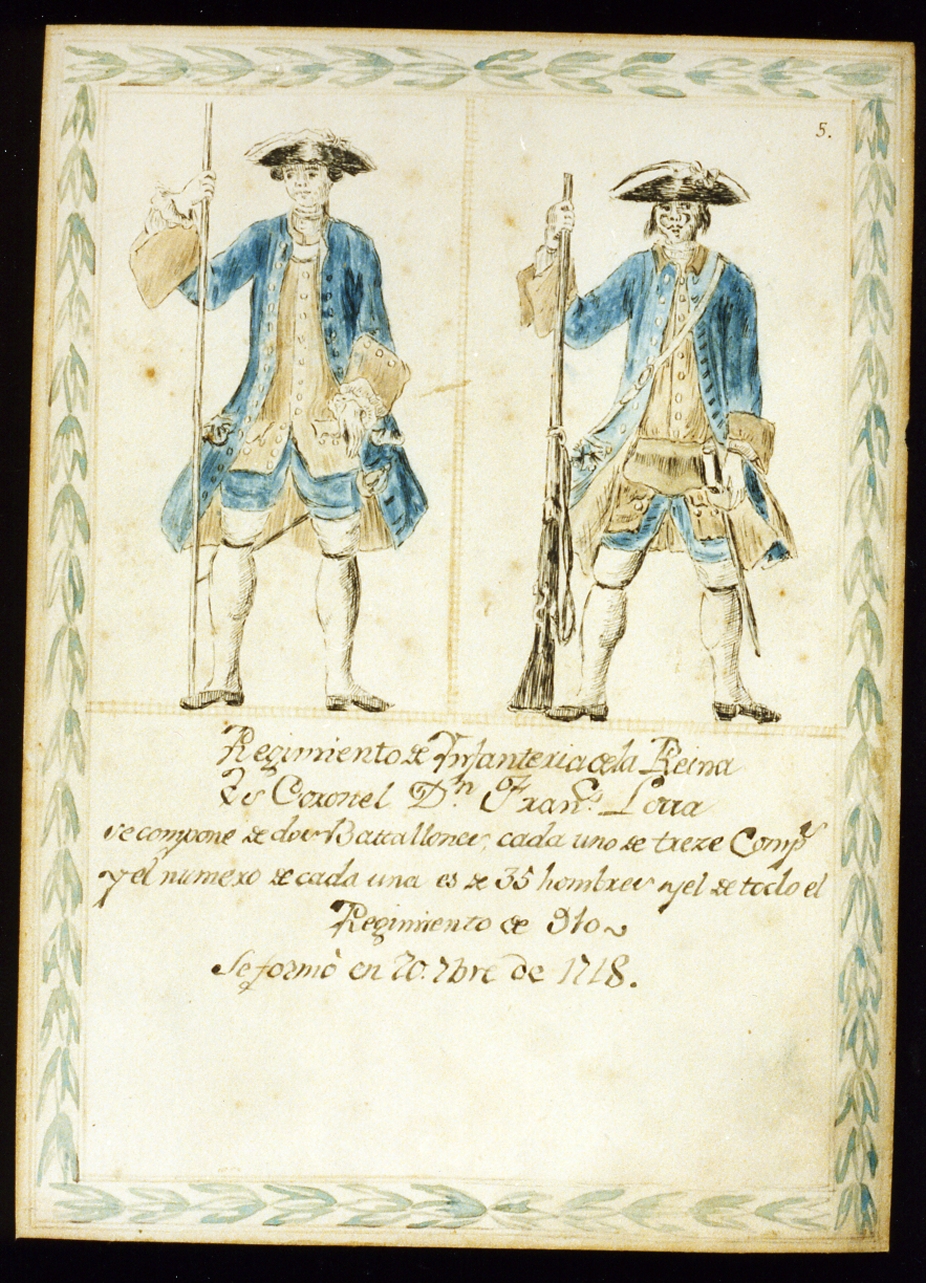 5.
Regimiento de Infanteria de la Reina
Es Coronel D.n Fran.co
se compone de dos Battallones, cada uno de treze Comp.s
y el numero de cada una es de 35 hombres y el de todo el
Regimiento de 910
Se formò en 20. 7bre de 1718.